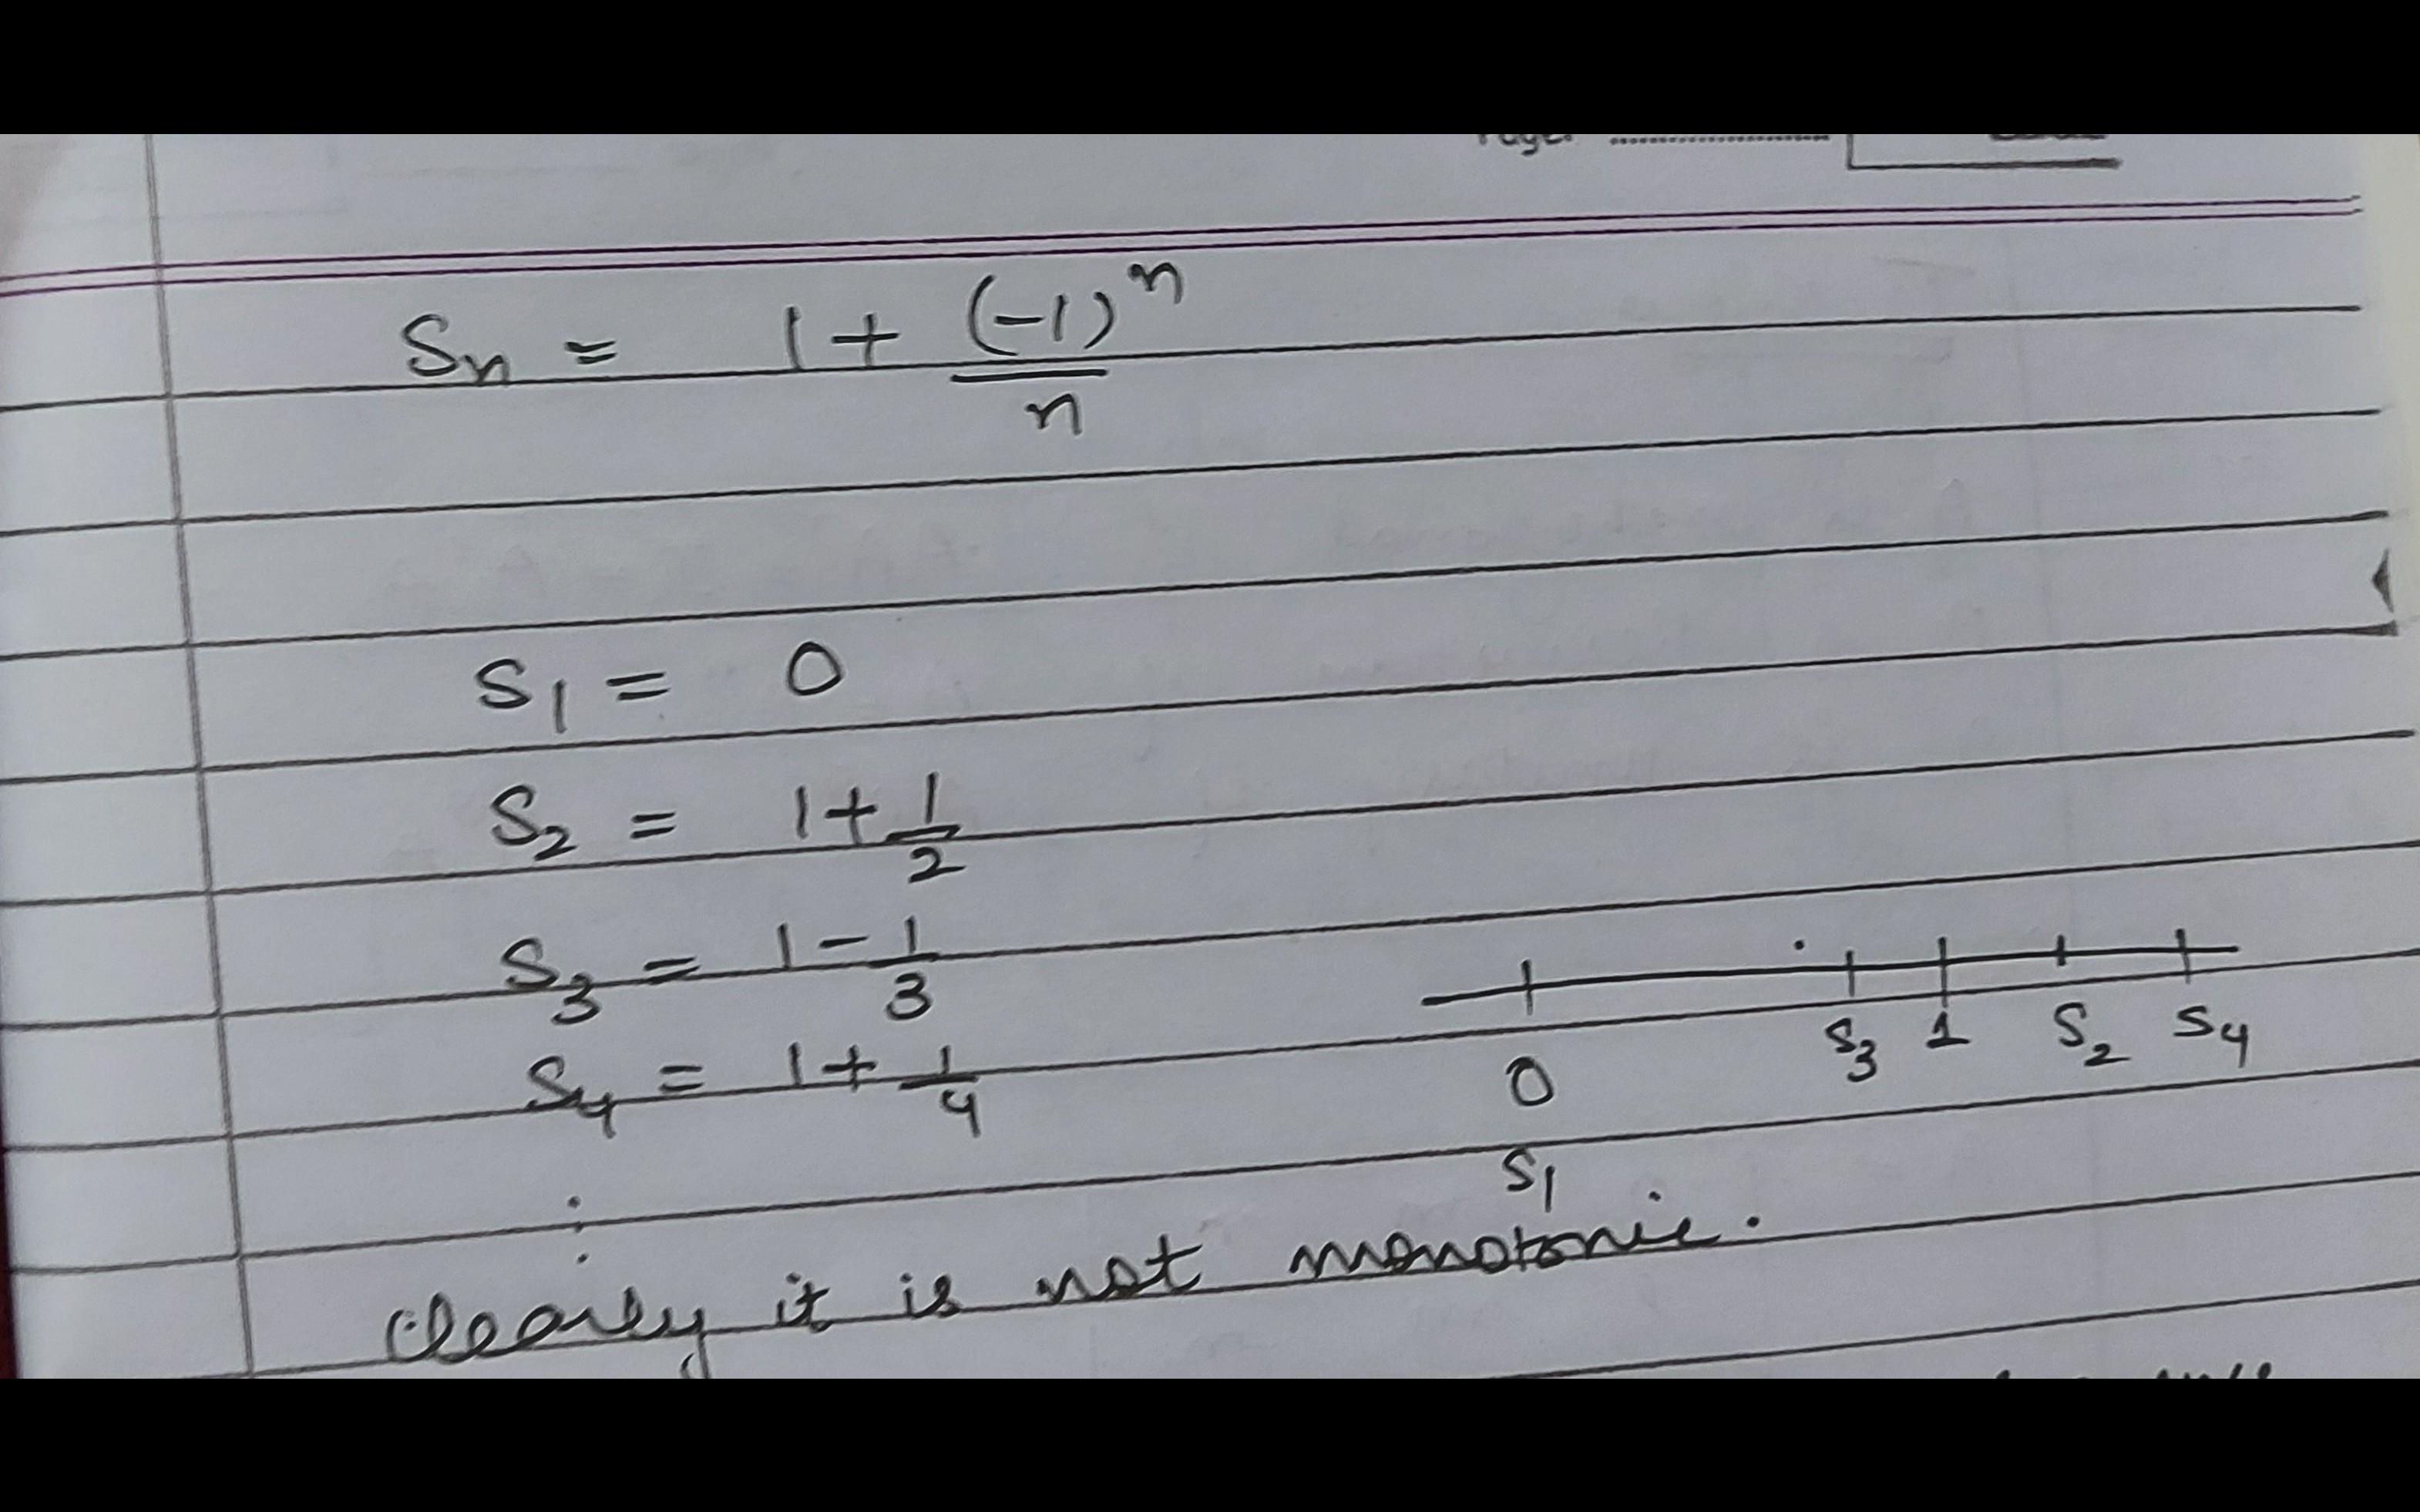 Page:
Sn = 1 + (-1)^n / n
S1 = 0
S2 = 1 + 1/2
S3 = 1 - 1/3
S4 = 1 + 1/4
0 S3 1 S2 S4
S1
:
clearly it is not monotonic.